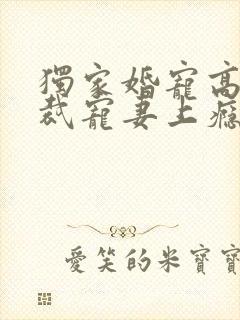 獨家婚寵高
裁寵妻上癮
愛笑的米寶寶